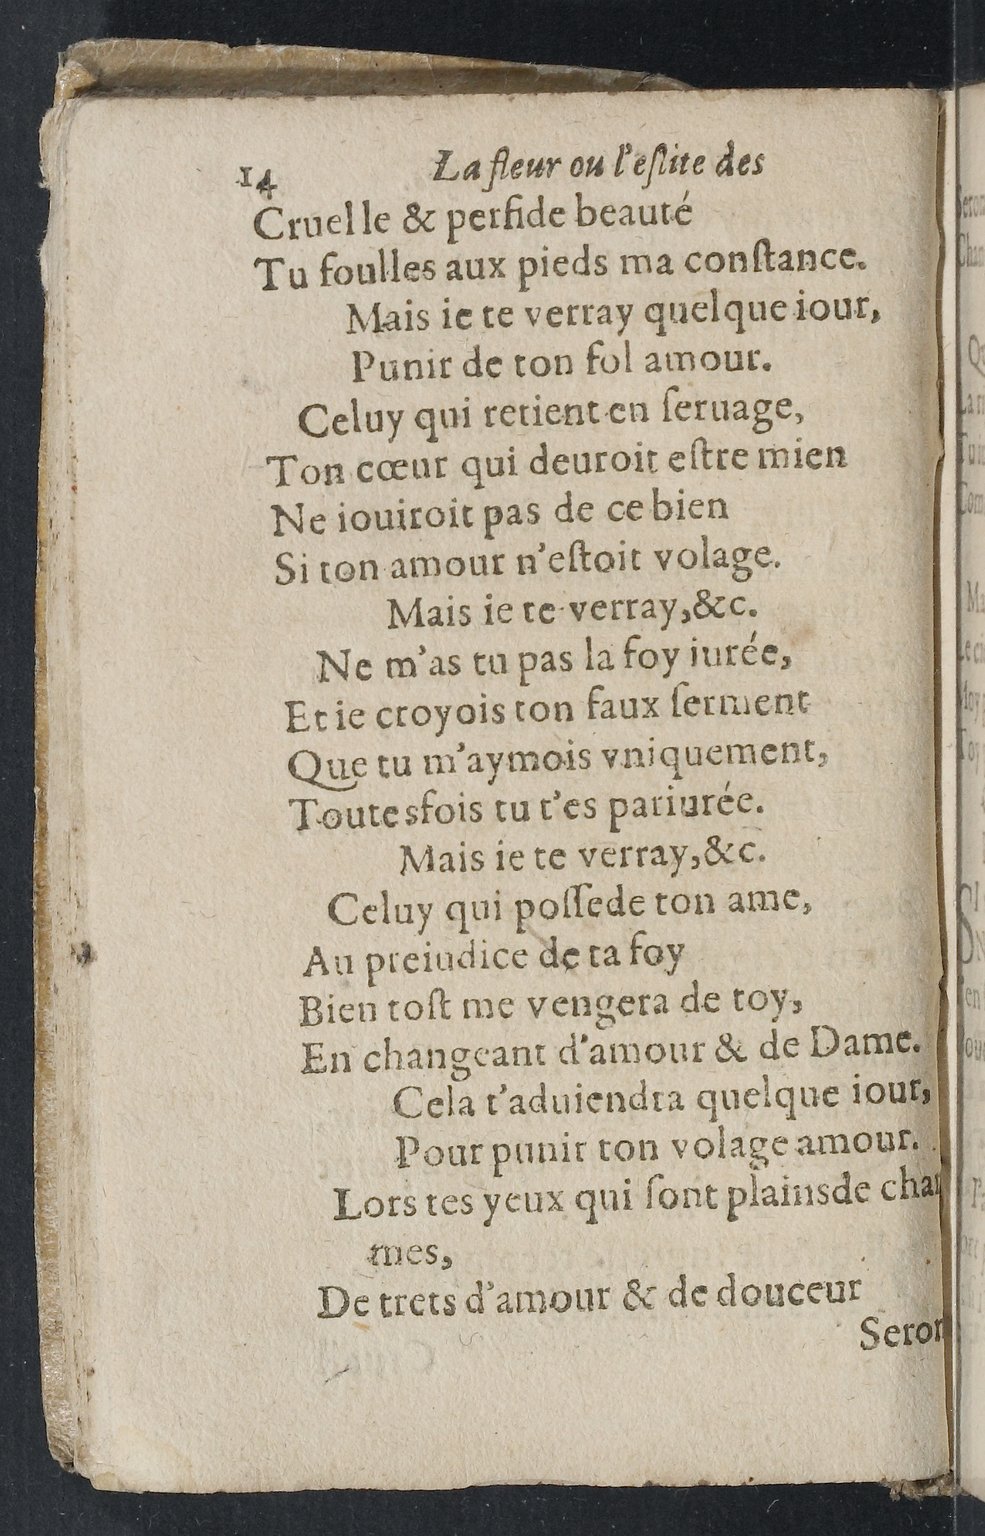 14 La fleur ou l'eſlite des
Cruelle & perfide beauté
Tu foulles aux pieds ma conſtance.
Mais ie te verray quelque iour,
Punir de ton fol amour.
Celuy qui retient en ſeruage,
Ton cœur qui deuroit eſtre mien
Ne iouiroit pas de ce bien
Si ton amour n'eſtoit volage.
Mais ie te verray,&c.
Ne m'as tu pas la foy iurée,
Et ie croyois ton faux ſerment
Que tu m'aymois vniquement,
Toutesfois tu t'es pariurée.
Mais ie te verray,&c.
Celuy qui poſſede ton ame,
Au preiudice de ta foy
Bien toſt me vengera de toy,
En changeant d'amour & de Dame.
Cela t'aduiendra quelque iour,
Pour punir ton volage amour.
Lors tes yeux qui ſont plainsde char
mes,
De trets d'amour & de douceur
Seron